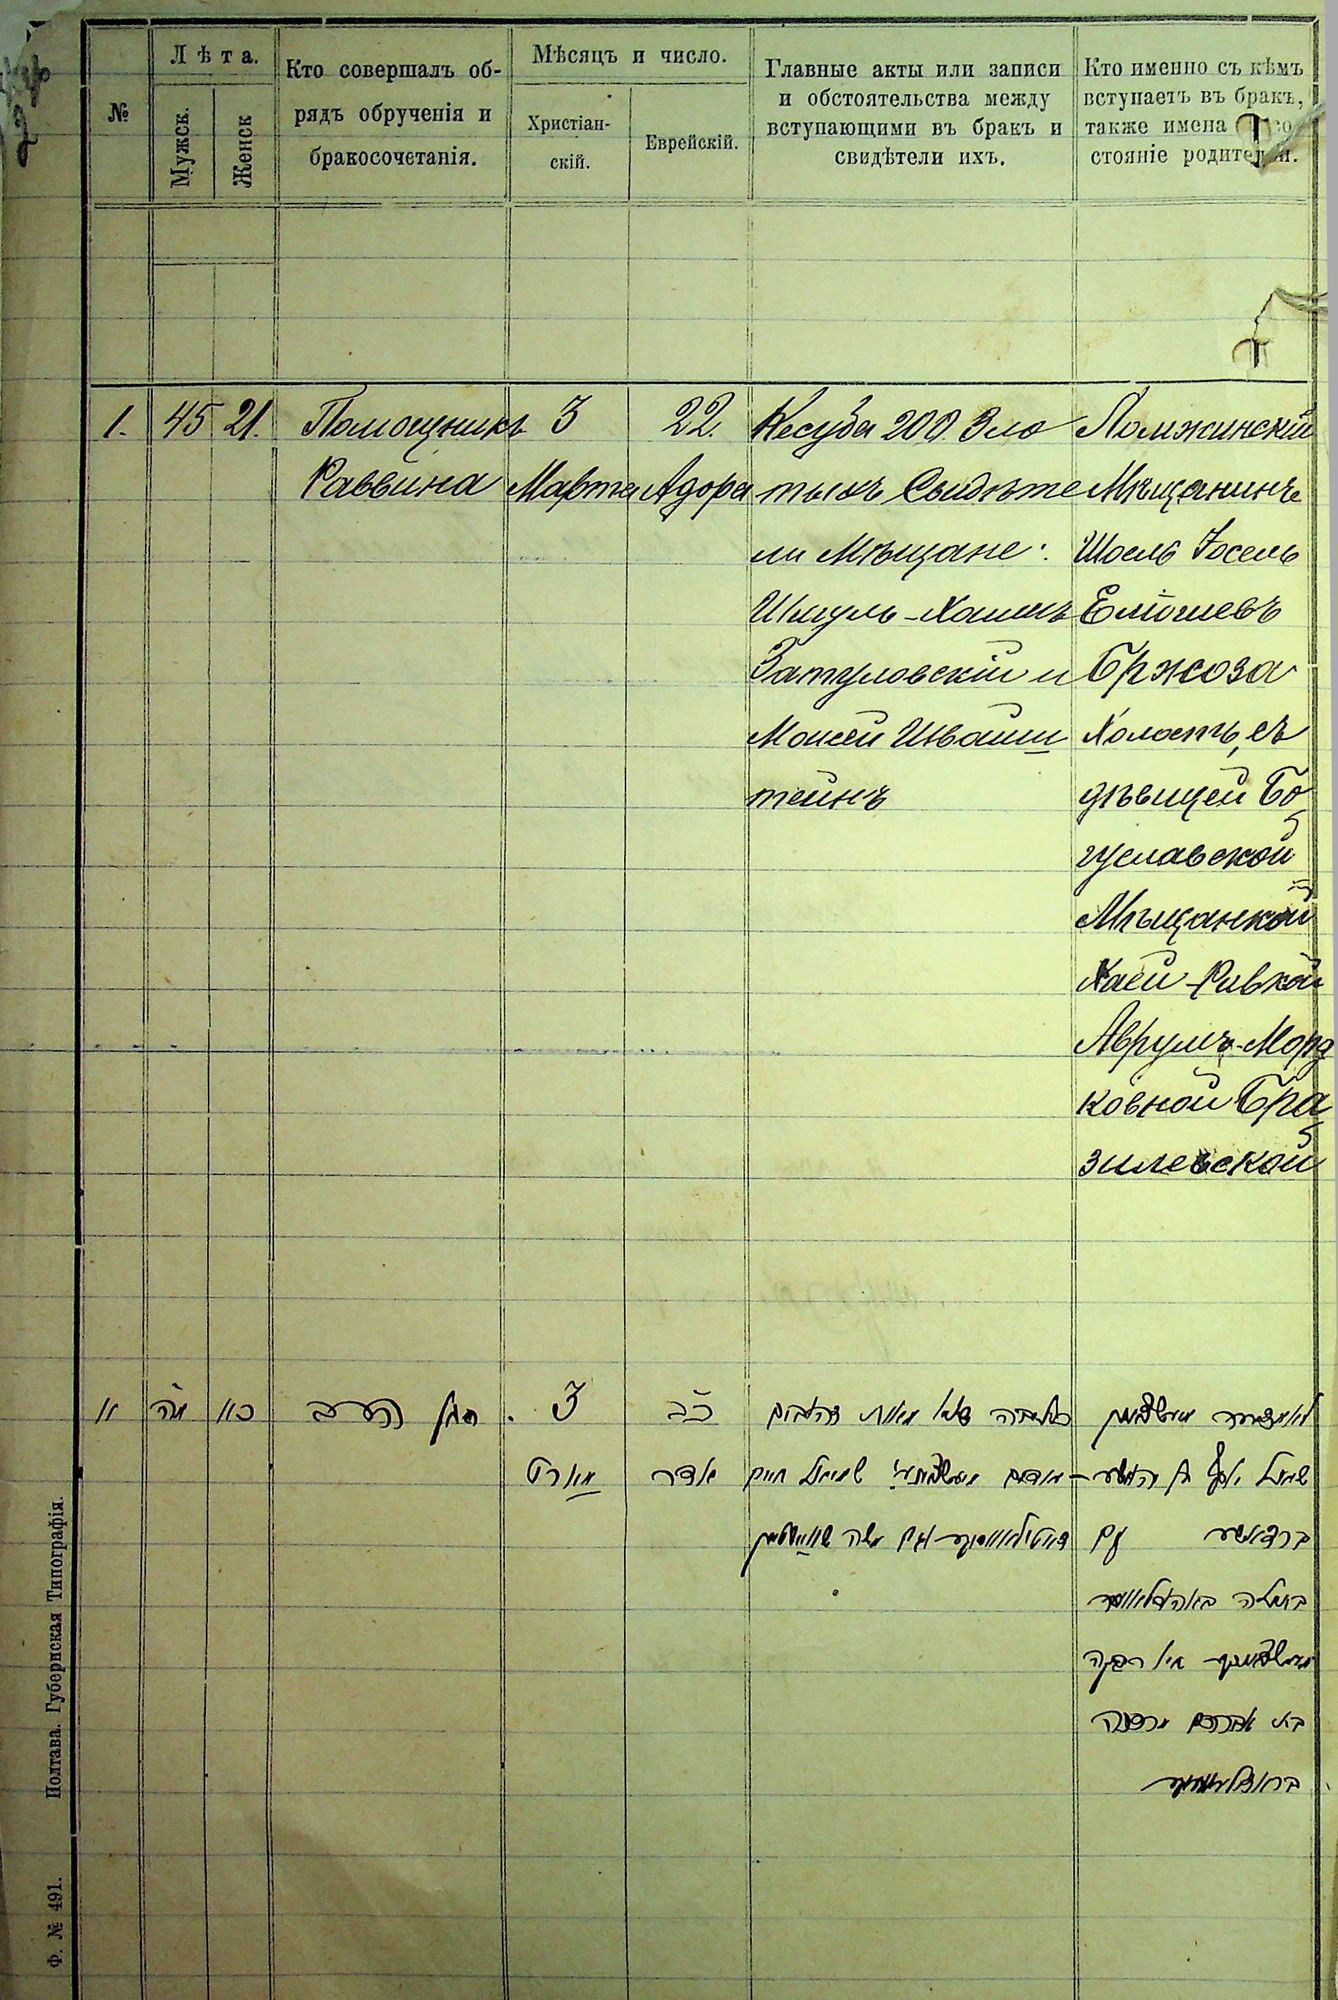 №
Лѣта.
Мужск.
Женск
Кто совершалъ об-
рядъ обрученія и
бракосочетанія.
Мѣсяцъ и число.
Христіан-
скій.
Еврейскій.
Главные акты или записи
и обстоятельства между
вступающими въ бракъ и
свидѣтели ихъ.
Кто именно съ кѣмъ
вступаетъ въ бракъ,
также имена
стояніе родителей.
1.
45
21.
Помощникъ
Раввина
3
Марта
22.
Адора
Кесуба 200. Зло
тыхъ Свидѣте
ли Мѣщане:
Шмуль-Хаимъ
Затуловскій и
Моисей Швайш
тейнъ
Ломжинскій
Мѣщанинъ
Шоель Іосель
Бржоза
Холостъ, съ
дѣвицей Бо
гуславской
Мѣщанкой
Хаей-Ривкой
Аврумъ-Морд
ковной Бра
зилевской
א
מה
כא
3
מארט
כב
אדר
כתובה מאות זהובים
שמואל חיים
משה
יוסף בן
עם
בתולה
רבקה
בת אברהם מרדכי
Полтава. Губернская Типографія.
Ф. № 491.